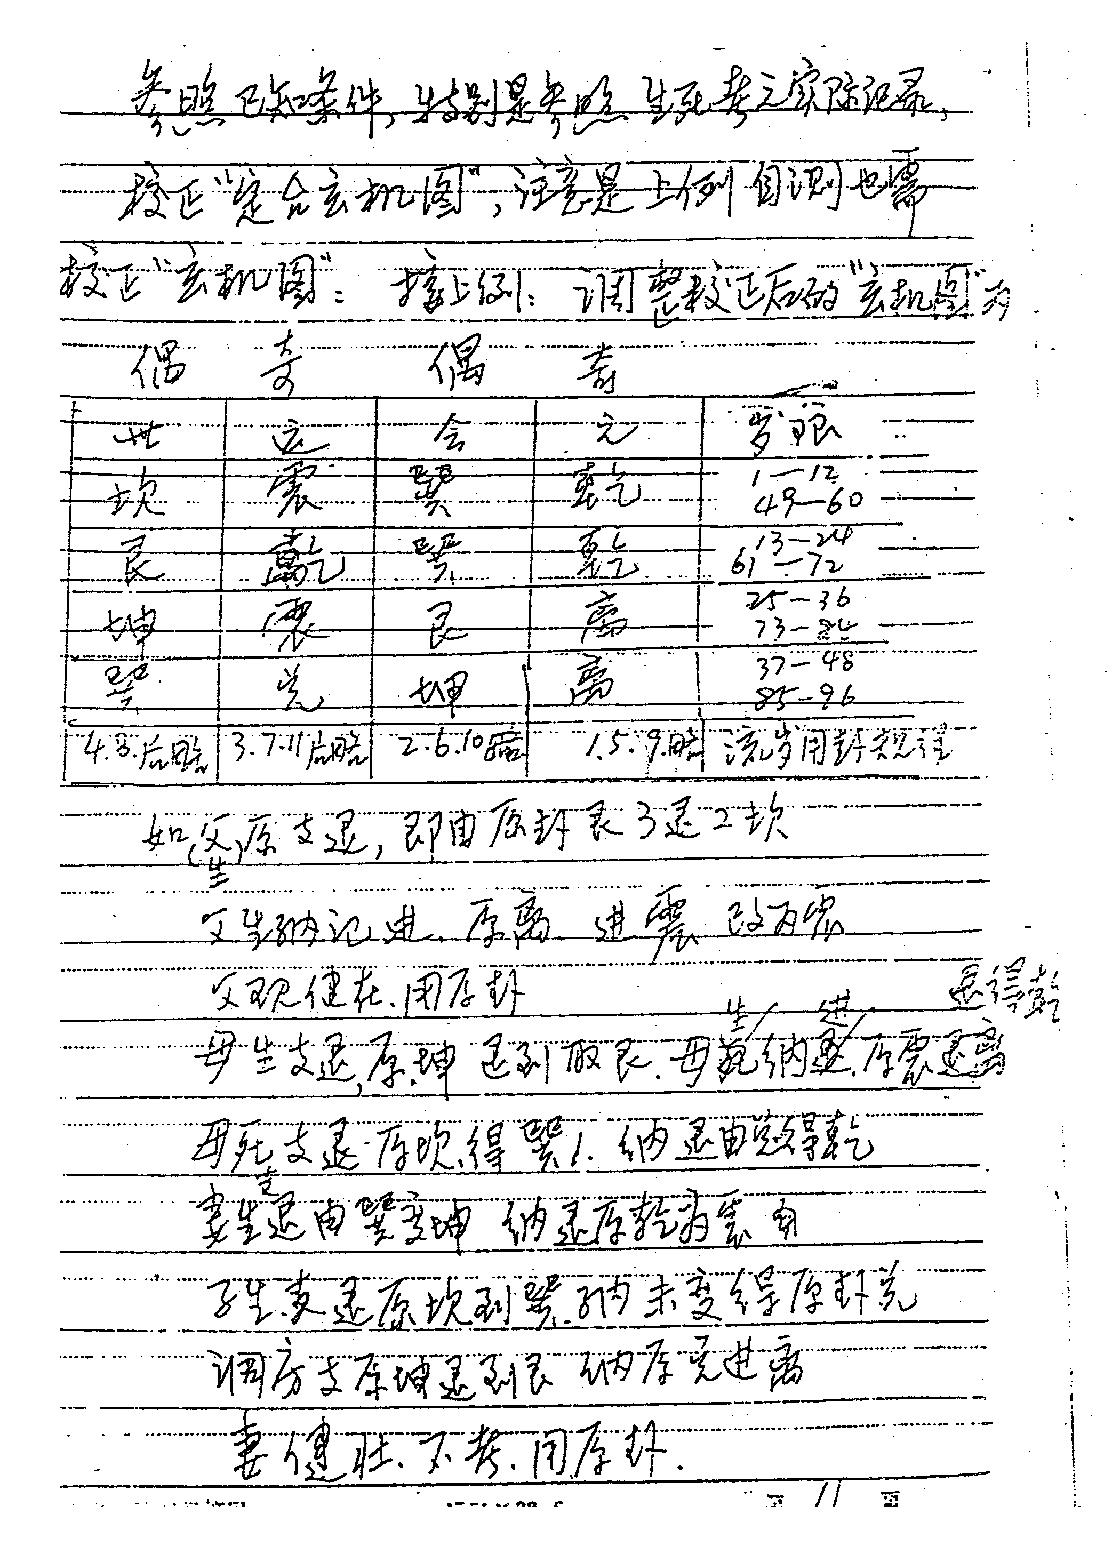 参照已知条件,特别是参照生死考之实际记录,
校正"定合玄机图",注意是上例自测也需
校正"玄机图": 接上例: 调整校正后的"玄机图"为
偶 奇 偶 奇
世 运 会 元 岁限
坎 震 巽 乾 1—12 49—60
艮 乾 巽 乾 13—24 61—72
坤 震 艮 离 25—36 73—84
巽 兑 坤 离 37—48 85—96
4.8. 3.7.11 2.6.10 1.5.9. 流岁用卦规程
如(父生)原支退,即由原卦艮3退2坎
父生纳记进.原离 进震 改为震
父现健在.用原卦
生 进 退得乾
母生支退,原坤 退到取艮.母死纳退.原震退离
母死支退.原坎得巽!. 纳退由兑得乾
支
妻生退由巽变坤 纳退原乾为震
子生支退原坎到巽.纳未变得原卦兑
调房支原坤退到艮 纳原兑进离
妻健壮.不考.用原卦.
11